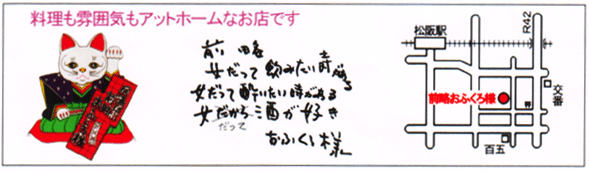 料理も雰囲気もアットホームなお店です
前略
女だって飲みたい時がある
女だって酔いたい時がある
女だから酒が好き
だって
おふくろ様
松阪駅
R42
前略おふくろ様
交番
百五